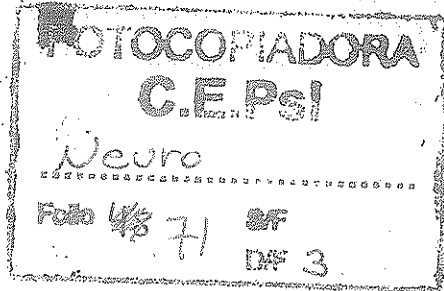 FOTOCOPIADORA
C.E.Psi
Neuro
Folio 71 S/F
D/F 3